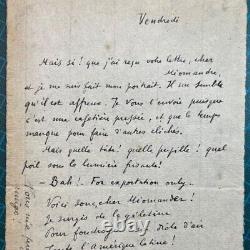 Vendredi
Mais si! que j'ai reçu votre lettre, cher
Miomandre,
et je me suis fait mon portrait. Il me semble
qu'il est affreux. Je vous l'envoie puisque
c'est une cafetière pressée, et que le temps
manque pour faire d'autres clichés.
Mais quelle tête! quelle pupille! quel
poil sous la lumière frontale!
Bah! For exportation only..
Voici donc, cher Miomandre!
Je surgis de la gélatine
Pour foudroyer
Toute l'Amérique latine!